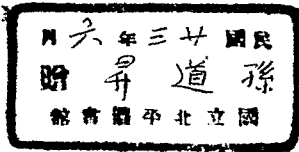 民國廿三年六月
孫道昇贈
國立北平圖書館